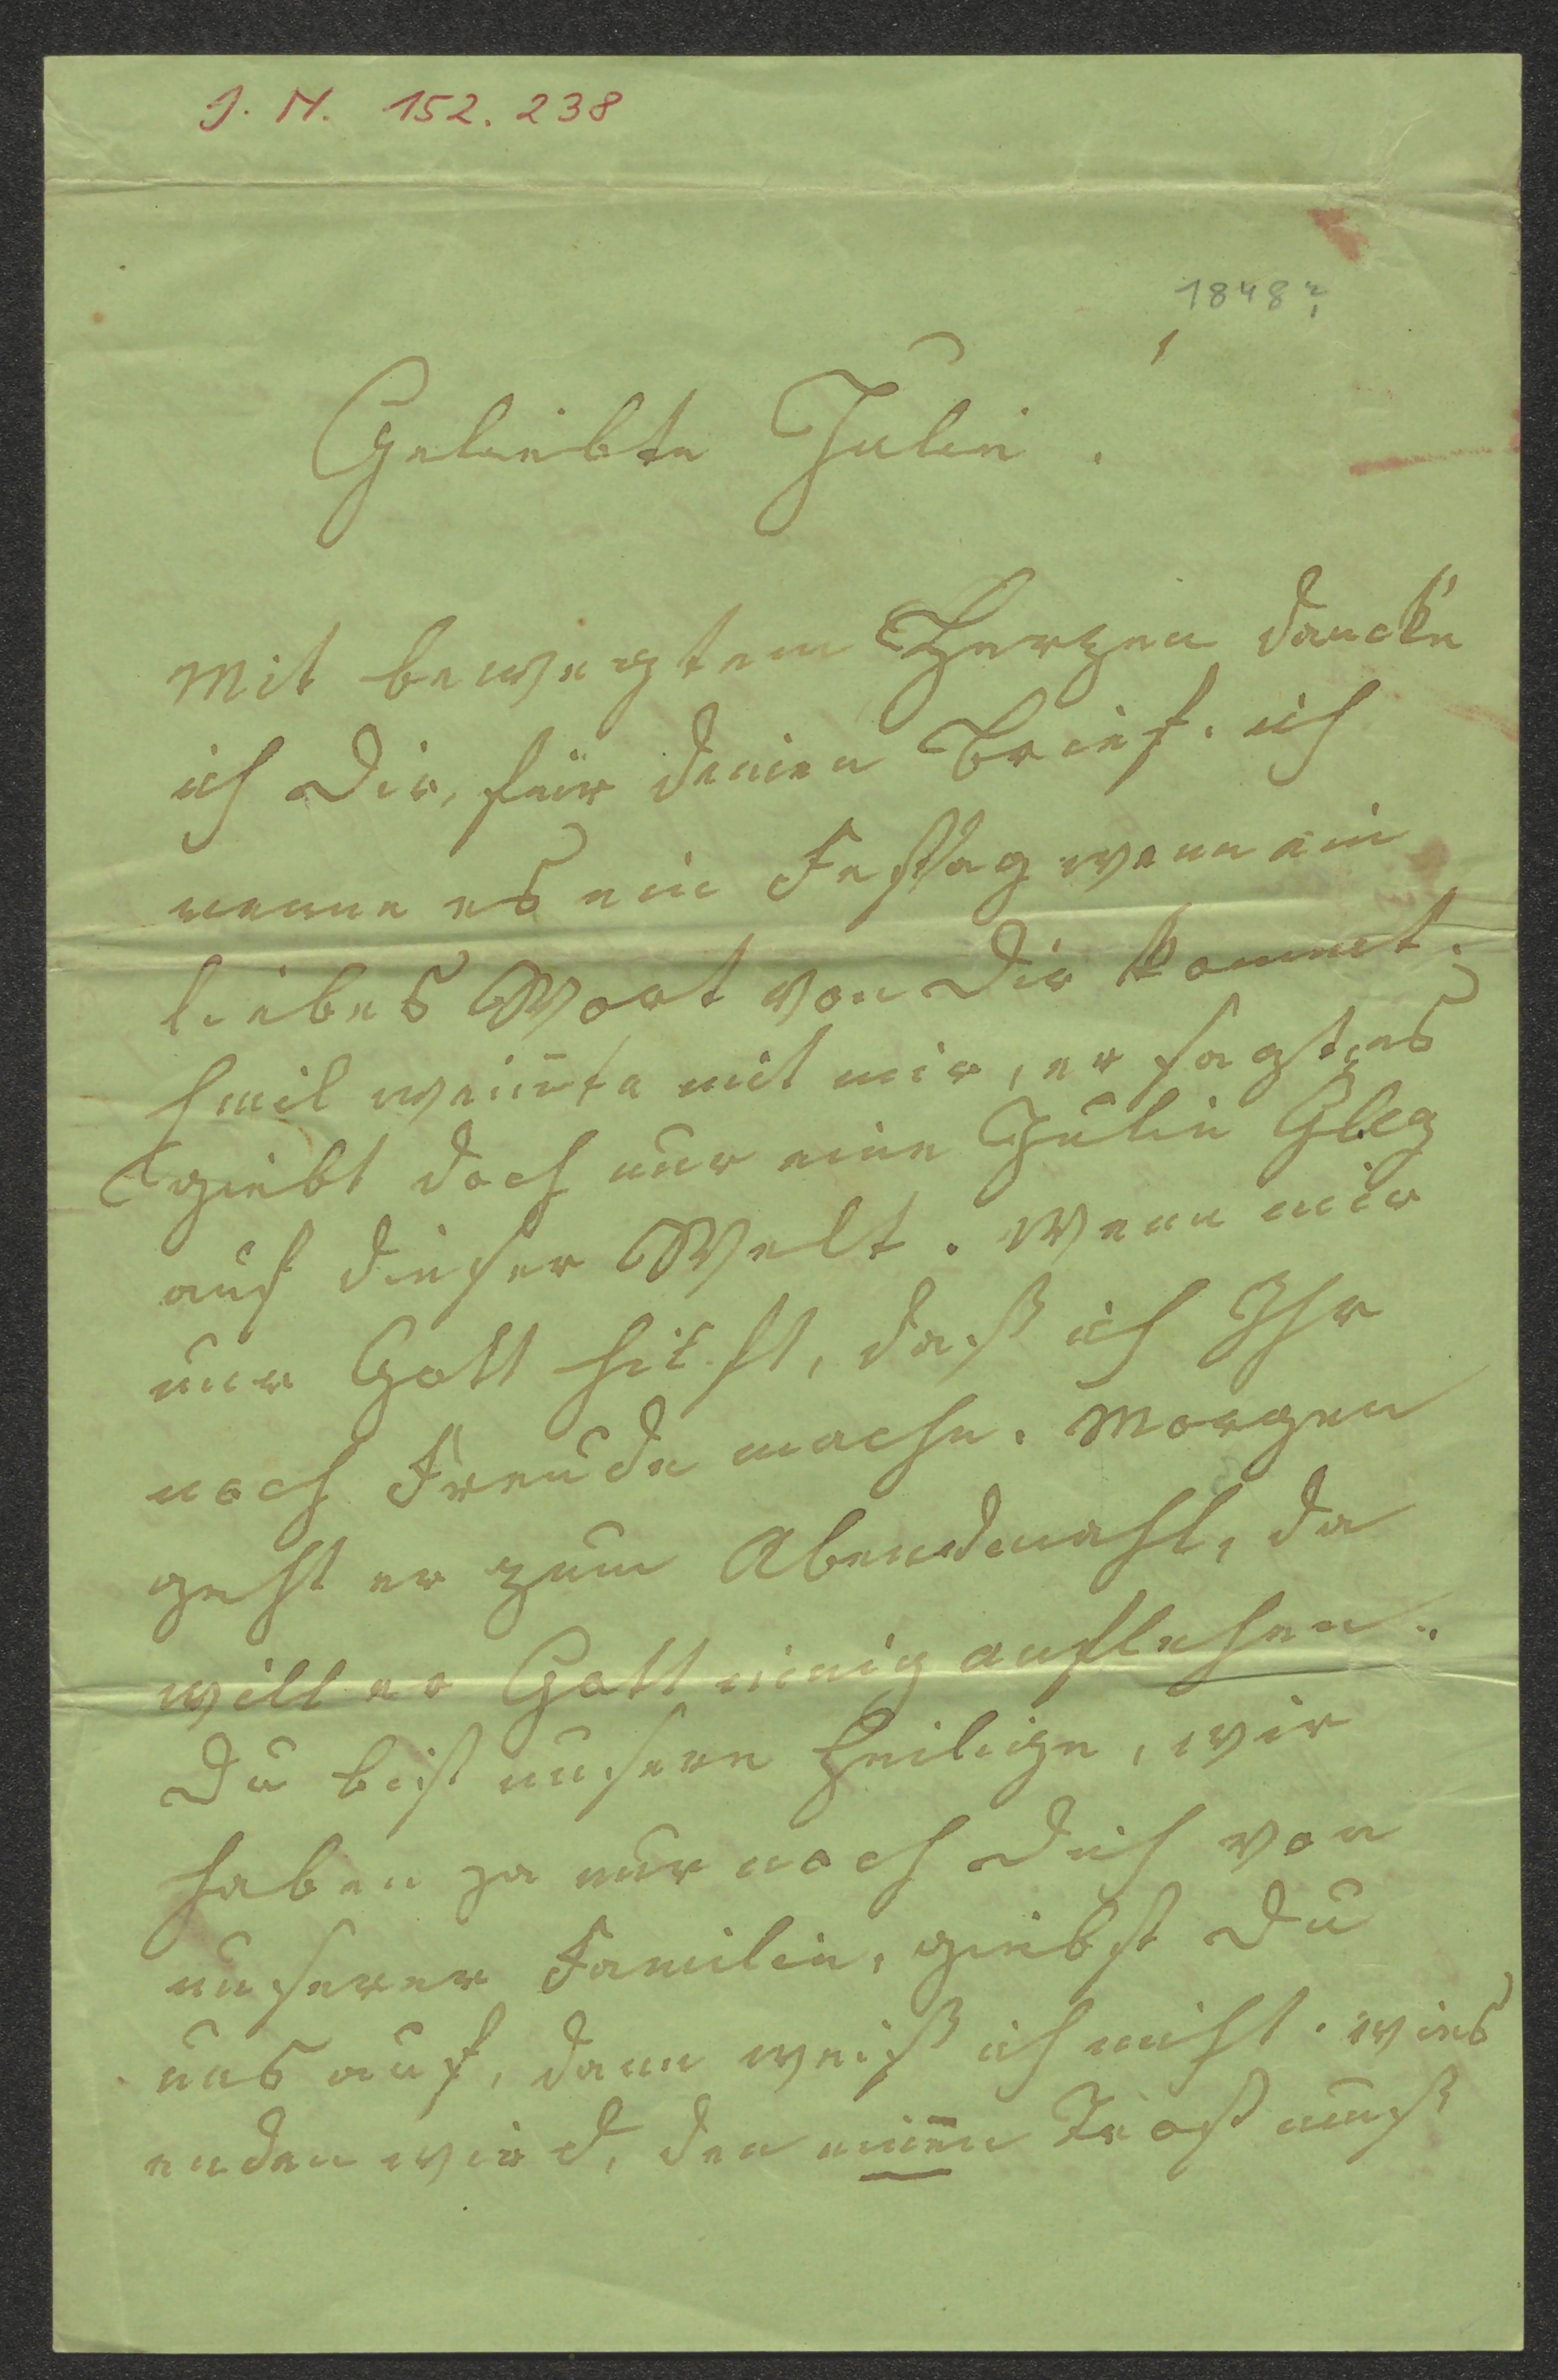 J. N. 152.238
1848?
Geliebte Julie!
Mit bewegtem Herzen dancke
ich Dir, für deinen Brief. ich
nenne es ein Festtag wenn ein
liebes Wort von Dir kommt.
Emil weinte mit mir, er sagt, es
giebt doch nur eine Julie
auf dieser Welt. Wenn mir
nur Gott hilft, daß ich Ihr
noch Freude mache. Morgen
geht er zum Abendmahl, da
will er Gott innig anflehen.
Du bist unsere Heilige, wir
haben ja nur noch Dich von
unserer Familie, giebst Du
uns auf, dann weiß ich nicht. wies
enden wird, den einen Trost muß